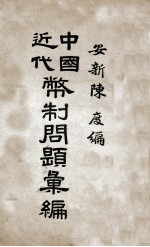 安新陳度編
中國近代幣制問題彙編